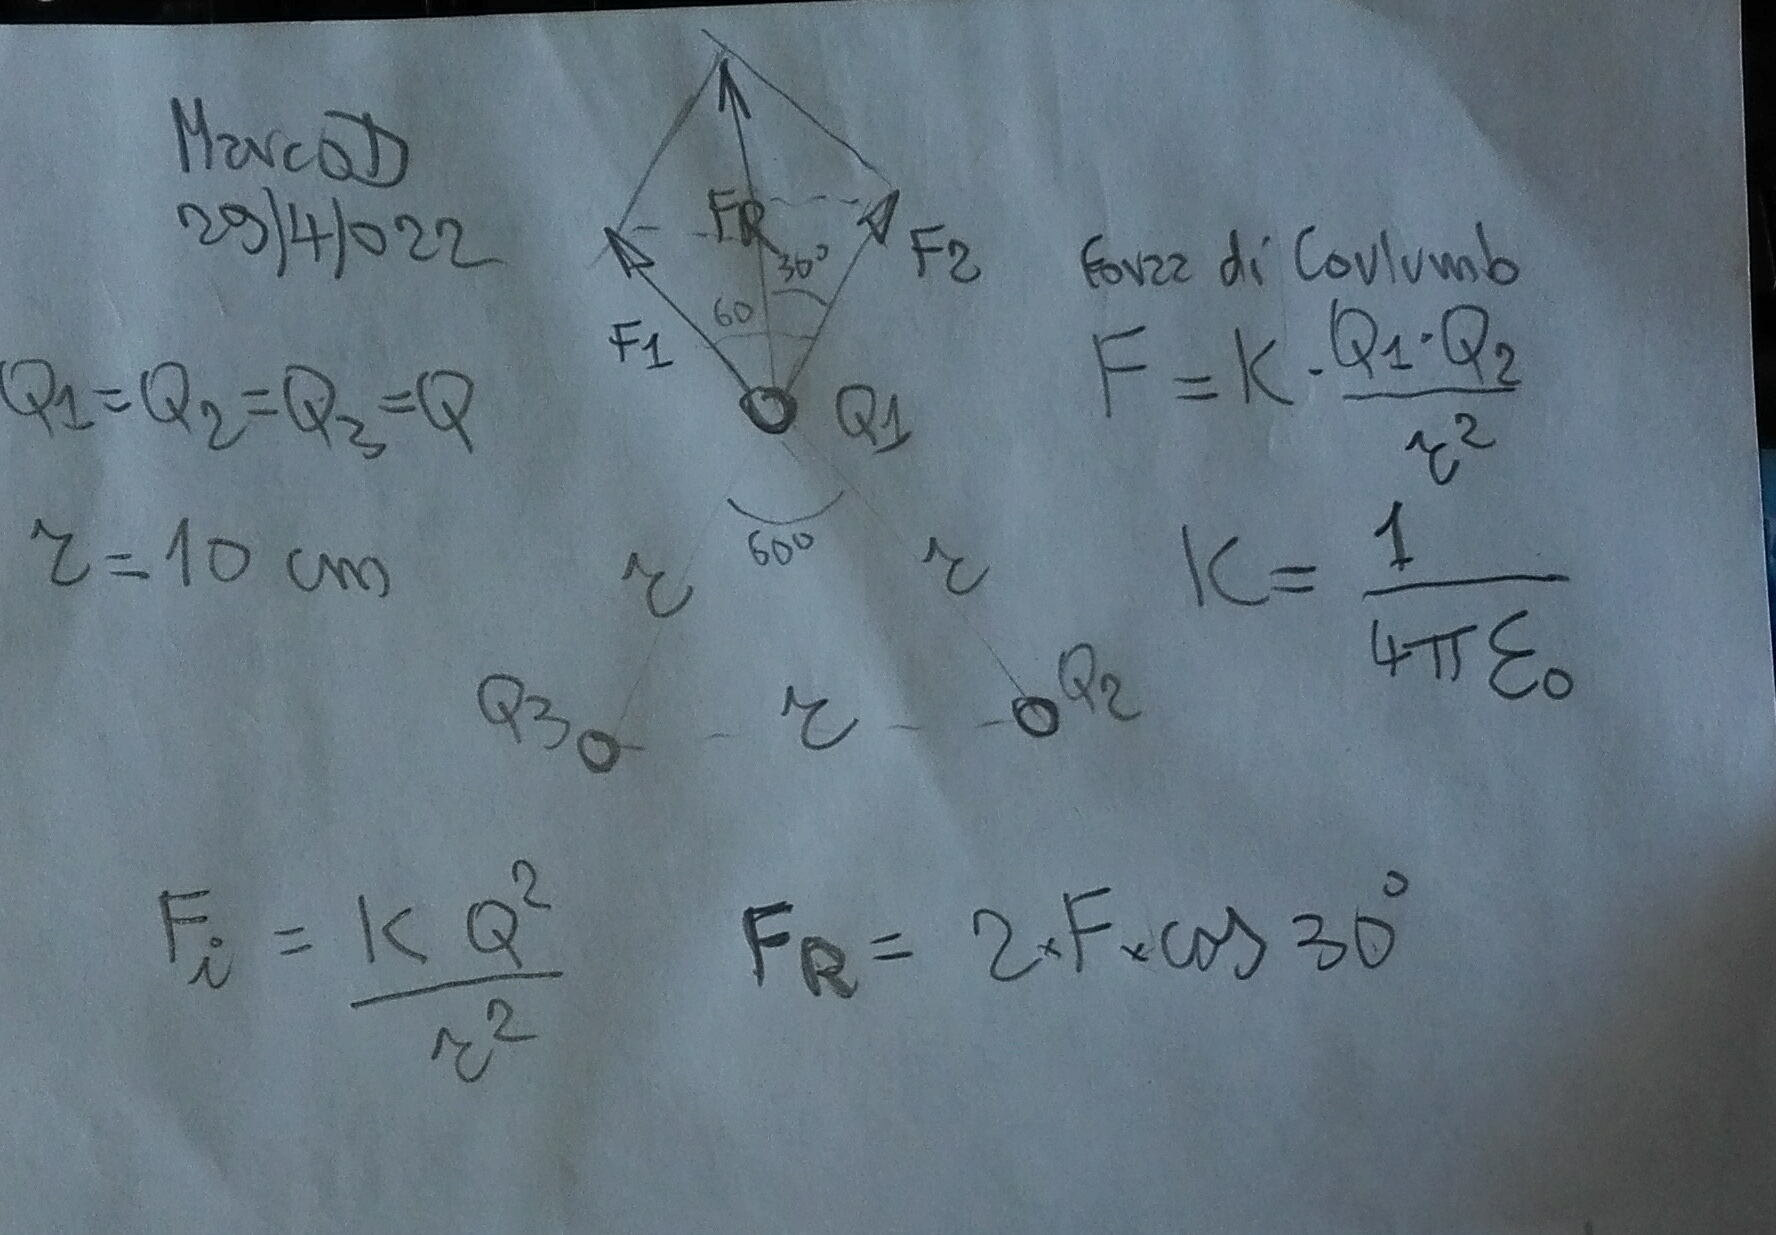 MarcoD
29/4/022
Q1=Q2=Q3=Q
r=10 cm
FR
30°
60
F1
F2
Q1
60°
r
r
Q3
r
Q2
Forza di Coulumb
F=K·Q1·Q2/r²
K=1/4πε0
Fi=KQ²/r²
FR=2×F×cos 30°